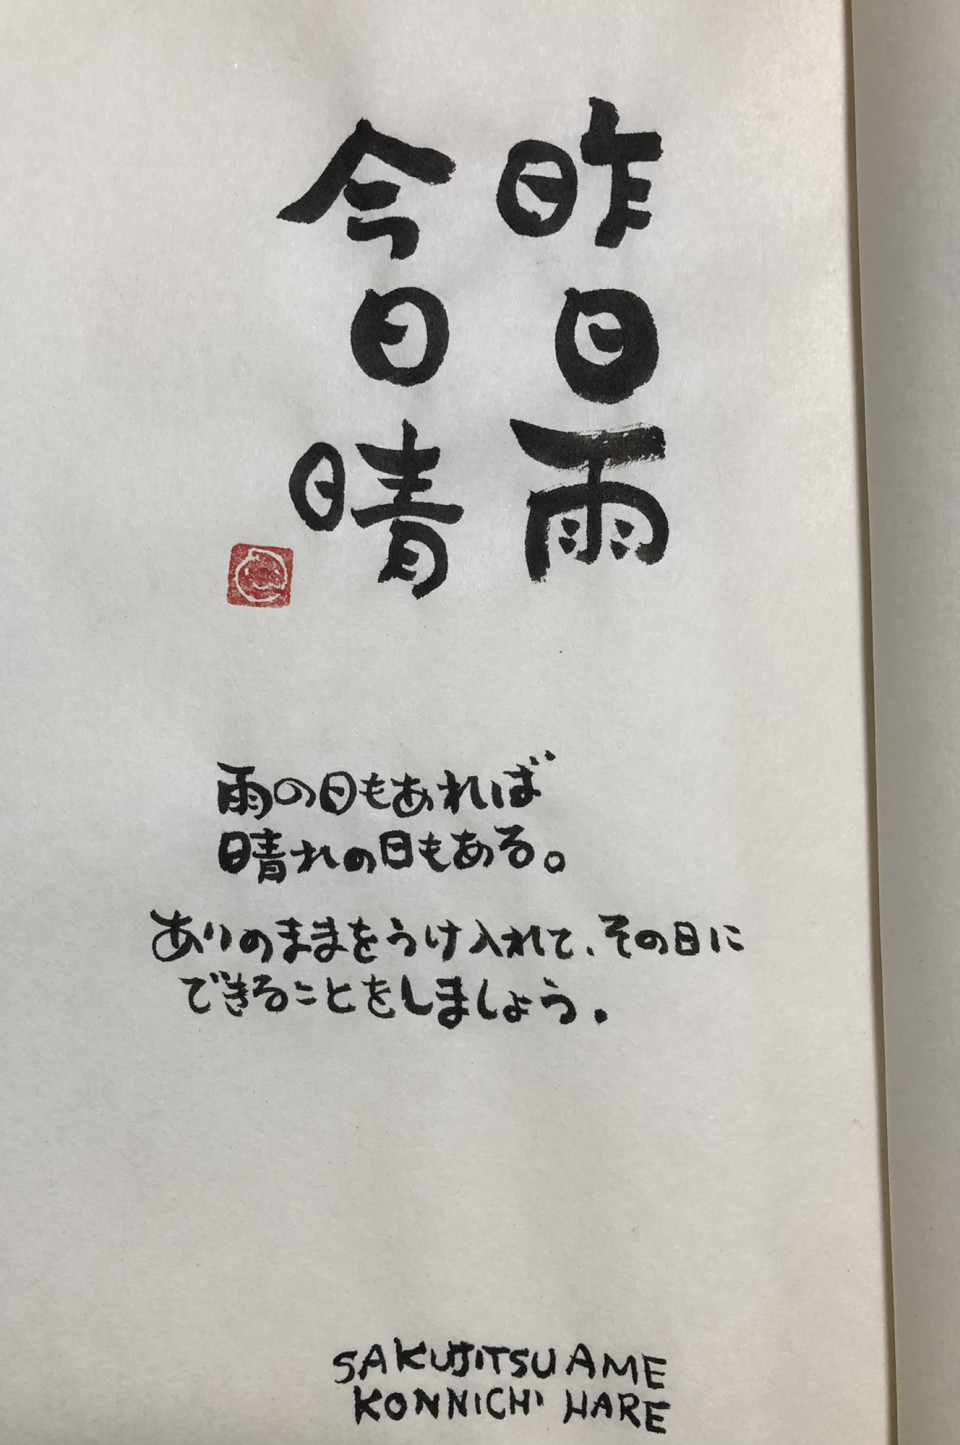 昨日雨
今日晴
雨の日もあれば
晴れの日もある。
ありのままをうけ入れて、その日に
できることをしましょう。
SAKUJITSU AME
KONNICHI HARE